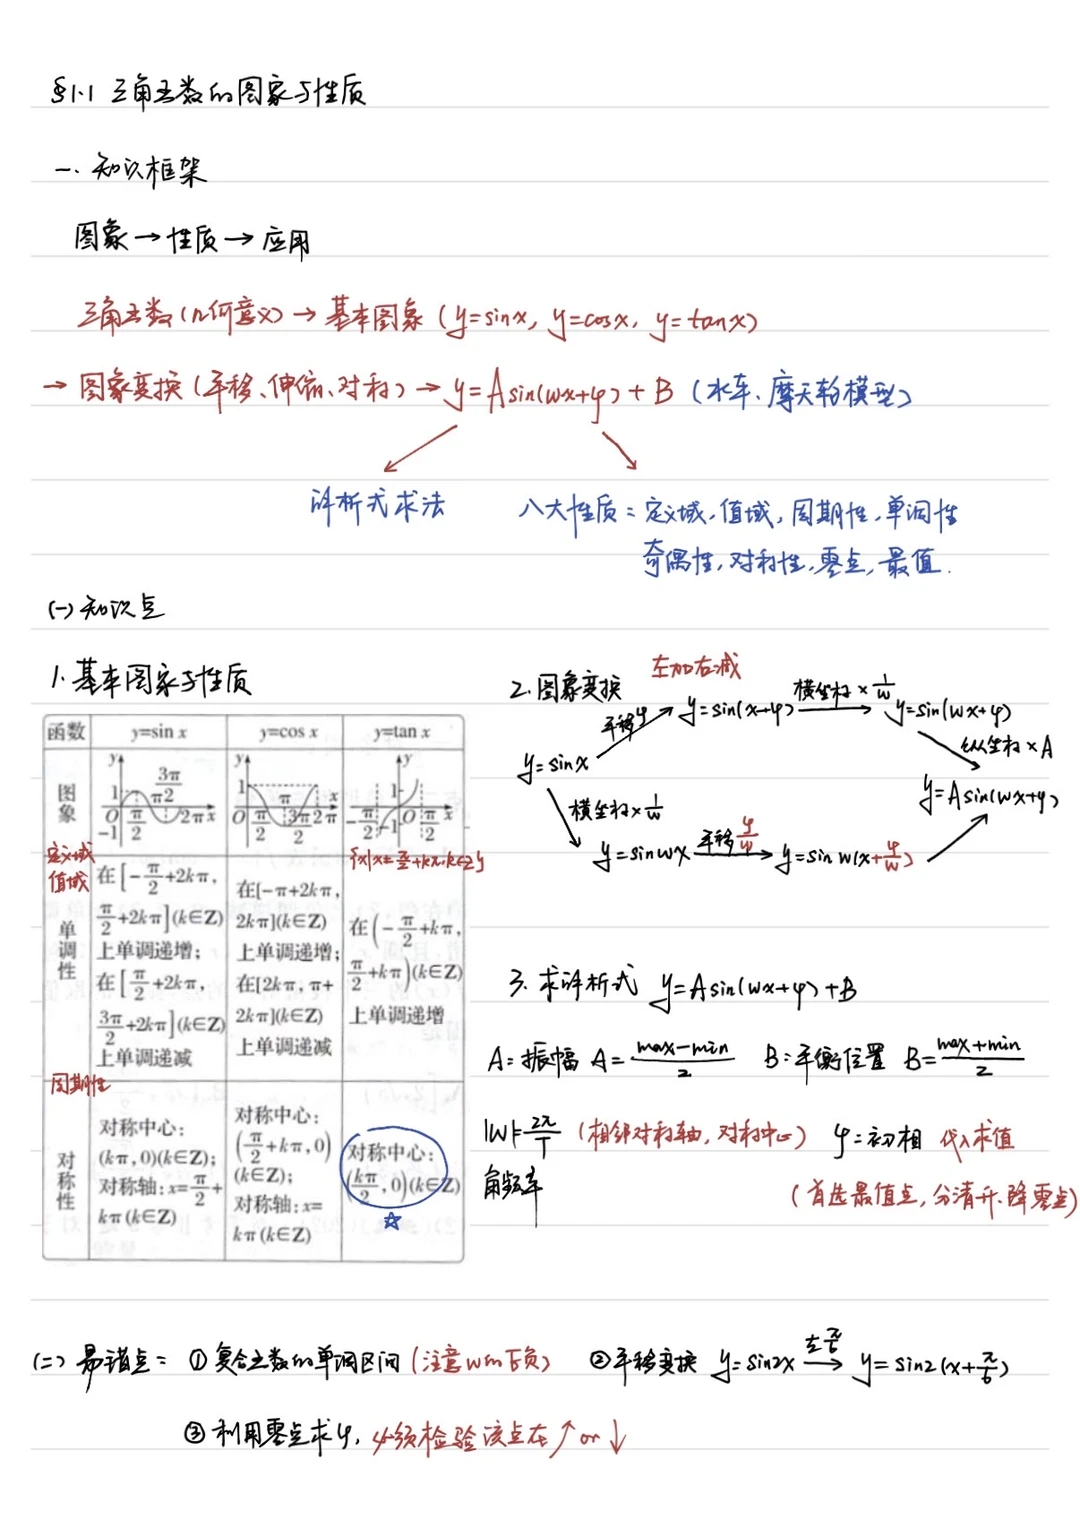 §1.1 三角函数的图象与性质
一. 知识框架
图象→性质→应用
三角函数(几何意义)→基本图象(y=sinx, y=cosx, y=tanx)
→图象变换(平移、伸缩、对称)→y=Asin(wx+φ)+B(水车、摩天轮模型)
解析式求法
八大性质：定义域、值域，周期性，单调性
奇偶性，对称性，零点，最值.
(一)知识点
1.基本图象与性质
函数 y=sin x y=cos x y=tan x
图象
y 1 3π/2 O π/2 π 2π x -1
y 1 O π/2 π 3π/2 2π x
y 1 -π/2 O π/2 x -1
定义域
值域
{x|x≠π/2+kπ,k∈Z}
单调性
在[-π/2+2kπ,
π/2+2kπ](k∈Z)
上单调递增;
在[π/2+2kπ,
3π/2+2kπ](k∈Z)
上单调递减
在[-π+2kπ,
2kπ](k∈Z)
上单调递增;
在[2kπ,π+
2kπ](k∈Z)
上单调递减
在(-π/2+kπ,
π/2+kπ)(k∈Z)
上单调递增
周期性
对称性
对称中心:
(kπ,0)(k∈Z);
对称轴:x=π/2+
kπ(k∈Z)
对称中心:
(π/2+kπ,0)
(k∈Z);
对称轴:x=
kπ(k∈Z)
对称中心:
(kπ/2,0)(k∈Z)
☆
2.图象变换
左加右减
y=sinx 平移φ y=sin(x+φ) 横坐标×1/w y=sin(wx+φ)
纵坐标×A
y=Asin(wx+φ)
横坐标×1/w
y=sinwx 平移φ/w y=sin w(x+φ/w)
3. 求解析式 y=Asin(wx+φ)+B
A：振幅 A=(max-min)/2 B：平衡位置 B=(max+min)/2
|w|=2π/T (相邻对称轴，对称中心) φ：初相 代入求值
角频率
(首选最值点，分清升、降零点)
(二) 易错点：①复合函数的单调区间(注意w的正负) ②平移变换 y=sin2x 左π/6→ y=sin2(x+π/6)
③利用零点求φ，必须检验该点在↑or↓